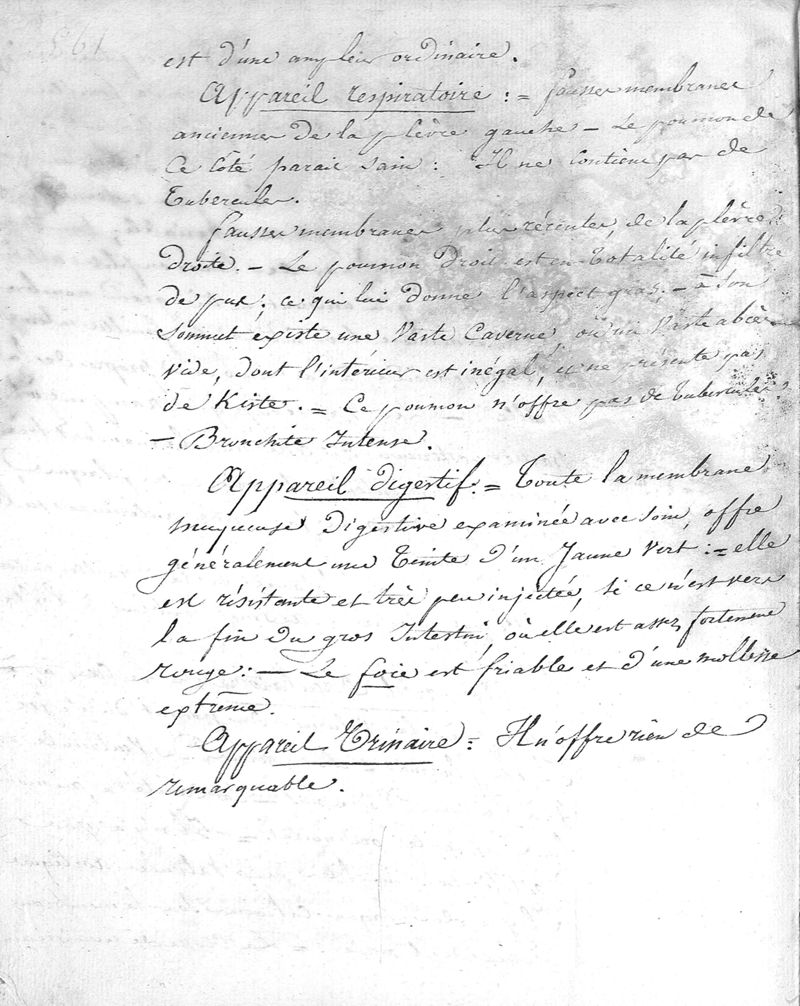 est d'une ampleur ordinaire.
Appareil respiratoire := fausses membranes
anciennes de la plèvre gauche – Le poumon de
ce côté parait sain : Il ne contient pas de
Tubercules.
fausses membranes plus récentes, de la plèvre
droite. – Le poumon Droit est en totalité infiltré
de pus ; ce qui lui donne l'aspect gras ; – à son
sommet existe une vaste caverne, ou un vaste abcès
vide, dont l'intérieur est inégal, et ne présente pas
de Kiste. = Ce poumon n'offre pas de tubercules
– Bronchite Intense.
Appareil digestif. = Toute la membrane
muqueuse digestive examinée avec soin, offre
généralement une teinte d'un Jaune vert : = elle
est résistante et très peu injectée, si ce n'est vers
la fin du gros Intestin, où elle est assez fortement
rouge : – Le foie est friable et d'une mollesse
extrême.
Appareil Urinaire = Il n'offre rien de
remarquable.